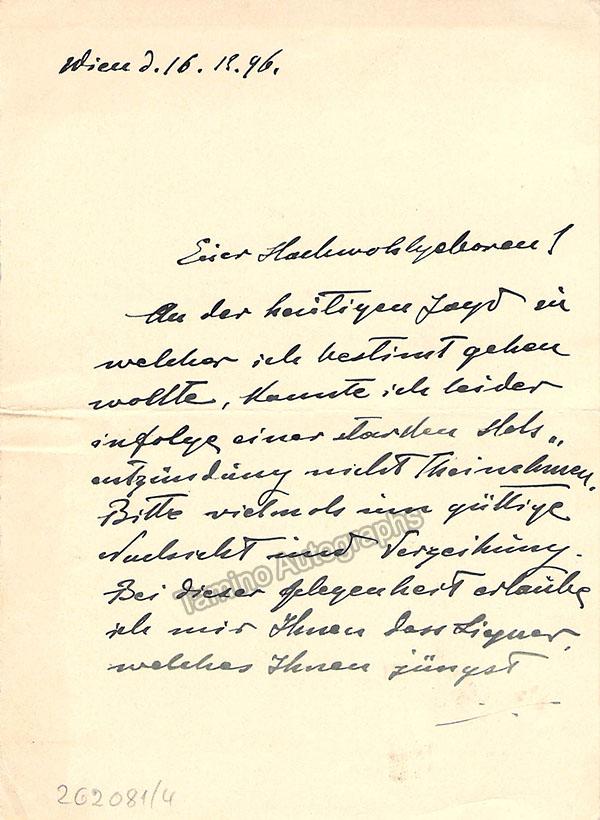 Wien d. 16. 12. 96.
Euer Hochwohlgeboren!
An der heutigen Jagd zu
welcher ich bestimt gehen
wollte, konnte ich leider
infolge einer starken Hals„
entzündung nicht Theinehmen.
Bitte vielmals um güttige
Nachsicht und Verzeihung.
Bei dieser gelegenheit erlaube
ich mir Ihnen dass
welches Ihnen jüngst
Tamino Autographs
202081/4